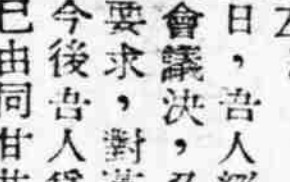 日，吾人
會議決，
要求，對
今後吾人
已由同甘